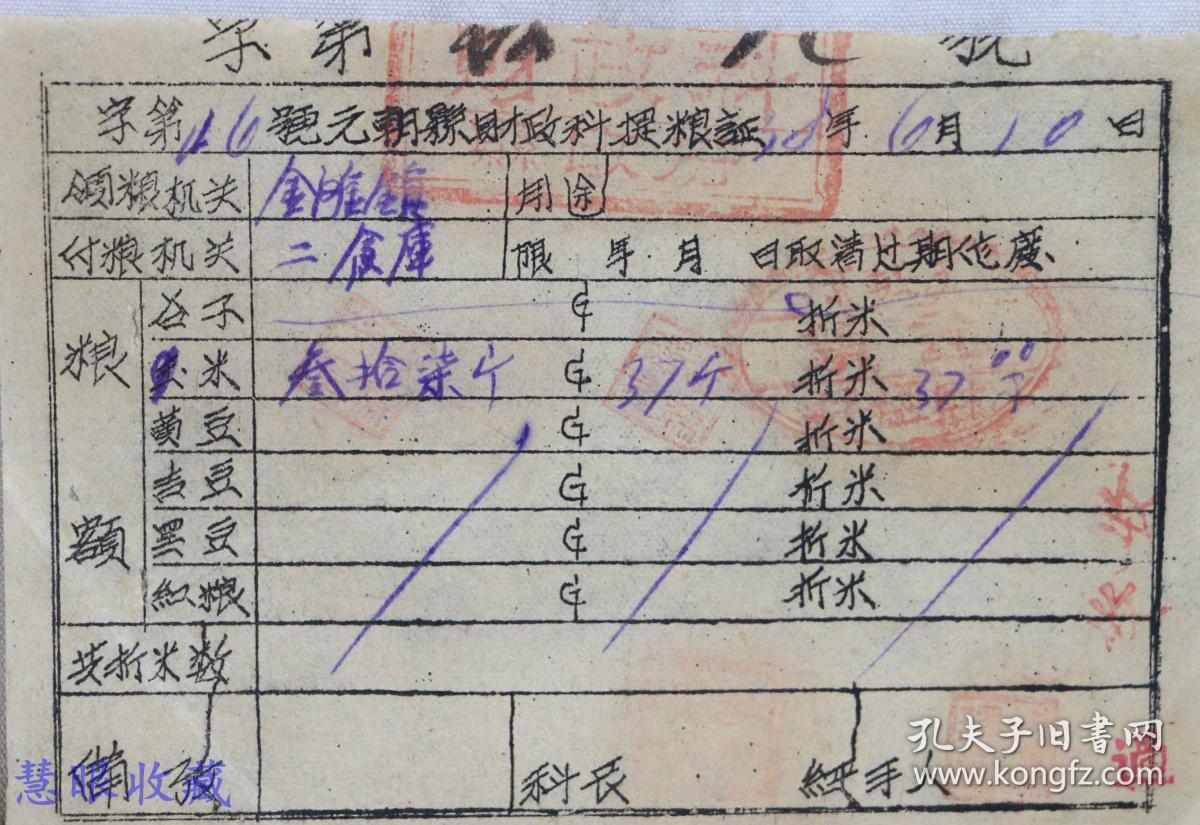 字第 號
字第16號元朝縣財政科提粮証38年6月10日
领粮机关 金滩鎮 用途
付粮机关 二倉庫 限 年 月 日取清过期作廢
粮額
谷子 斤 折米
玉米 叁拾柒斤 斤 37斤 折米 37斤
黄豆 斤 折米
吉豆 斤 折米
黑豆 斤 折米
紅粮 斤 折米
共折米数
備攷 科长 經手人
慧眼收藏
孔夫子旧书网
www.kongfz.com